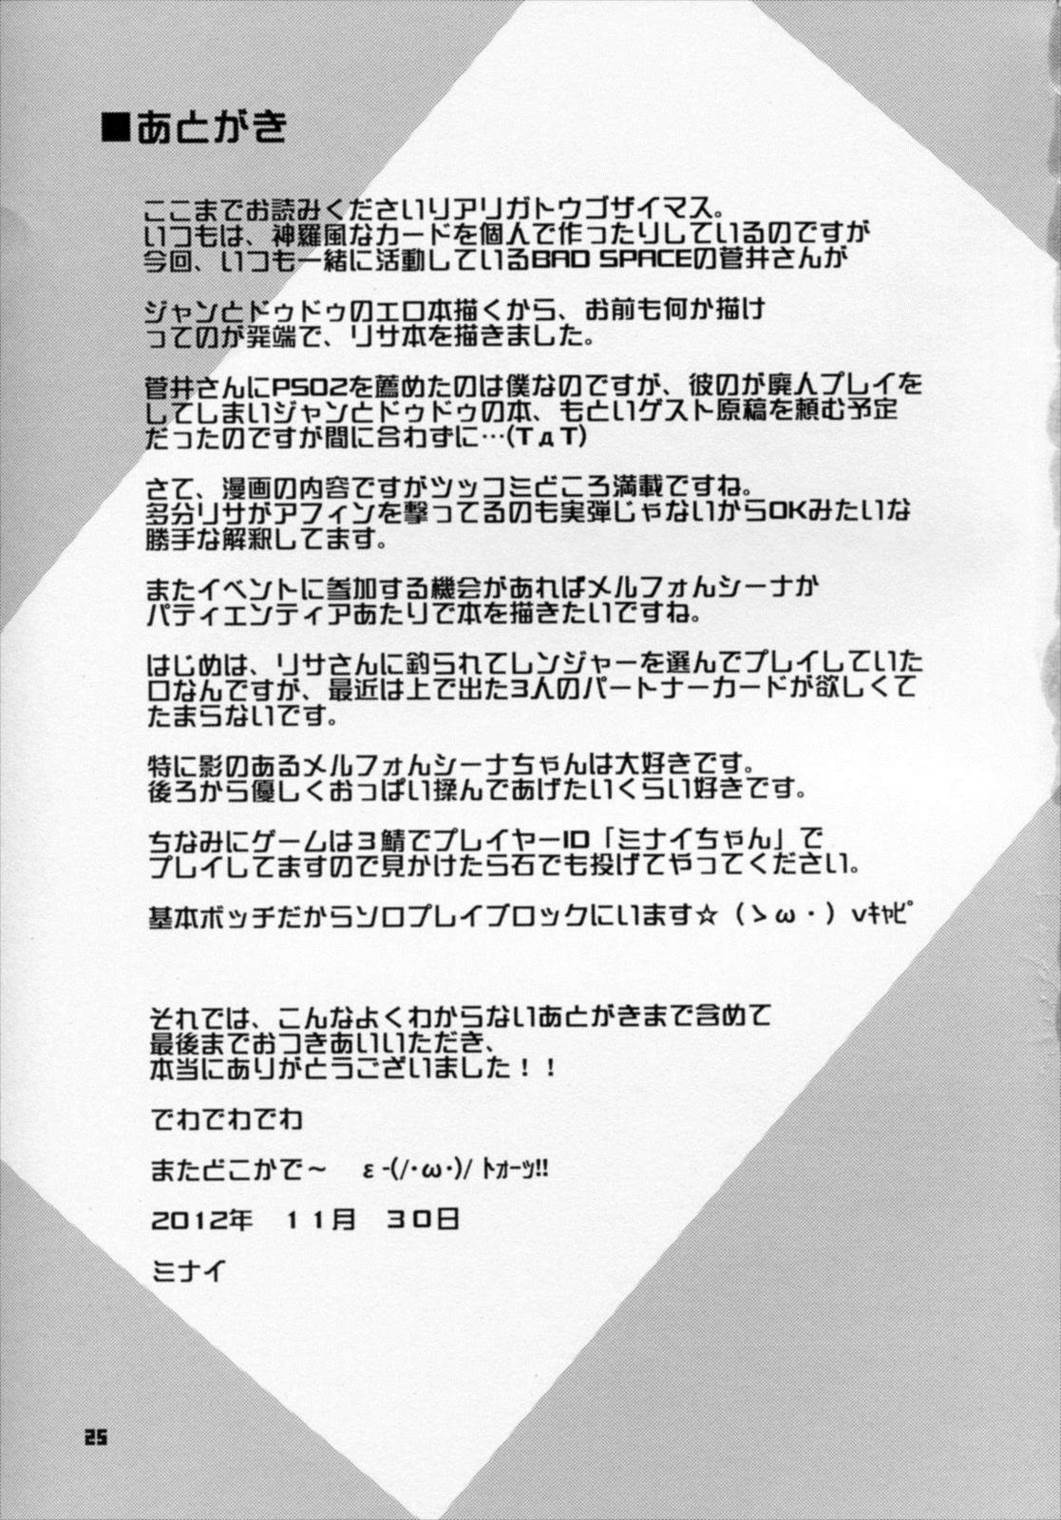 ■あとがき
ここまでお読みくださいりアリガトウゴザイマス。
いつもは、神羅風なカードを個人で作ったりしているのですが
今回、いつも一緒に活動しているBAD SPACEの菅井さんが
ジャンとドゥドゥのエロ本描くから、お前も何か描け
ってのが発端で、リサ本を描きました。
菅井さんにPSO2を薦めたのは僕なのですが、彼のが廃人プレイを
してしまいジャンとドゥドゥの本、もといゲスト原稿を頼む予定
だったのですが間に合わずに…(TдT)
さて、漫画の内容ですがツッコミどころ満載ですね。
多分リサがアフィンを撃ってるのも実弾じゃないからOKみたいな
勝手な解釈してます。
またイベントに参加する機会があればメルフォんシーナか
パティエンティアあたりで本を描きたいですね。
はじめは、リサさんに釣られてレンジャーを選んでプレイしていた
口なんですが、最近は上で出た3人のパートナーカードが欲しくて
たまらないです。
特に影のあるメルフォんシーナちゃんは大好きです。
後ろから優しくおっぱい揉んであげたいくらい好きです。
ちなみにゲームは３鯖でプレイヤーID「ミナイちゃん」で
プレイしてますので見かけたら石でも投げてやってください。
基本ボッチだからソロプレイブロックにいます☆（ゝω・）vｷｬﾋﾟ
それでは、こんなよくわからないあとがきまで含めて
最後までおつきあいいただき、
本当にありがとうございました！！
でわでわでわ
またどこかで～　ε-(/･ω･)/ ﾄｫｰｯ!!
2012年　１１月　３０日
ミナイ
25